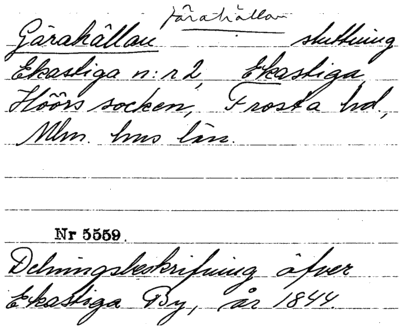 Järahällan
Gärahällan sluttning
Ekastiga n:r 2, Ekastiga
Höörs socken, Frosta hd,
Mlm. hus län.
Nr 5559.
Delningsbeskrifning öfver
Ekastiga By, år 1844.